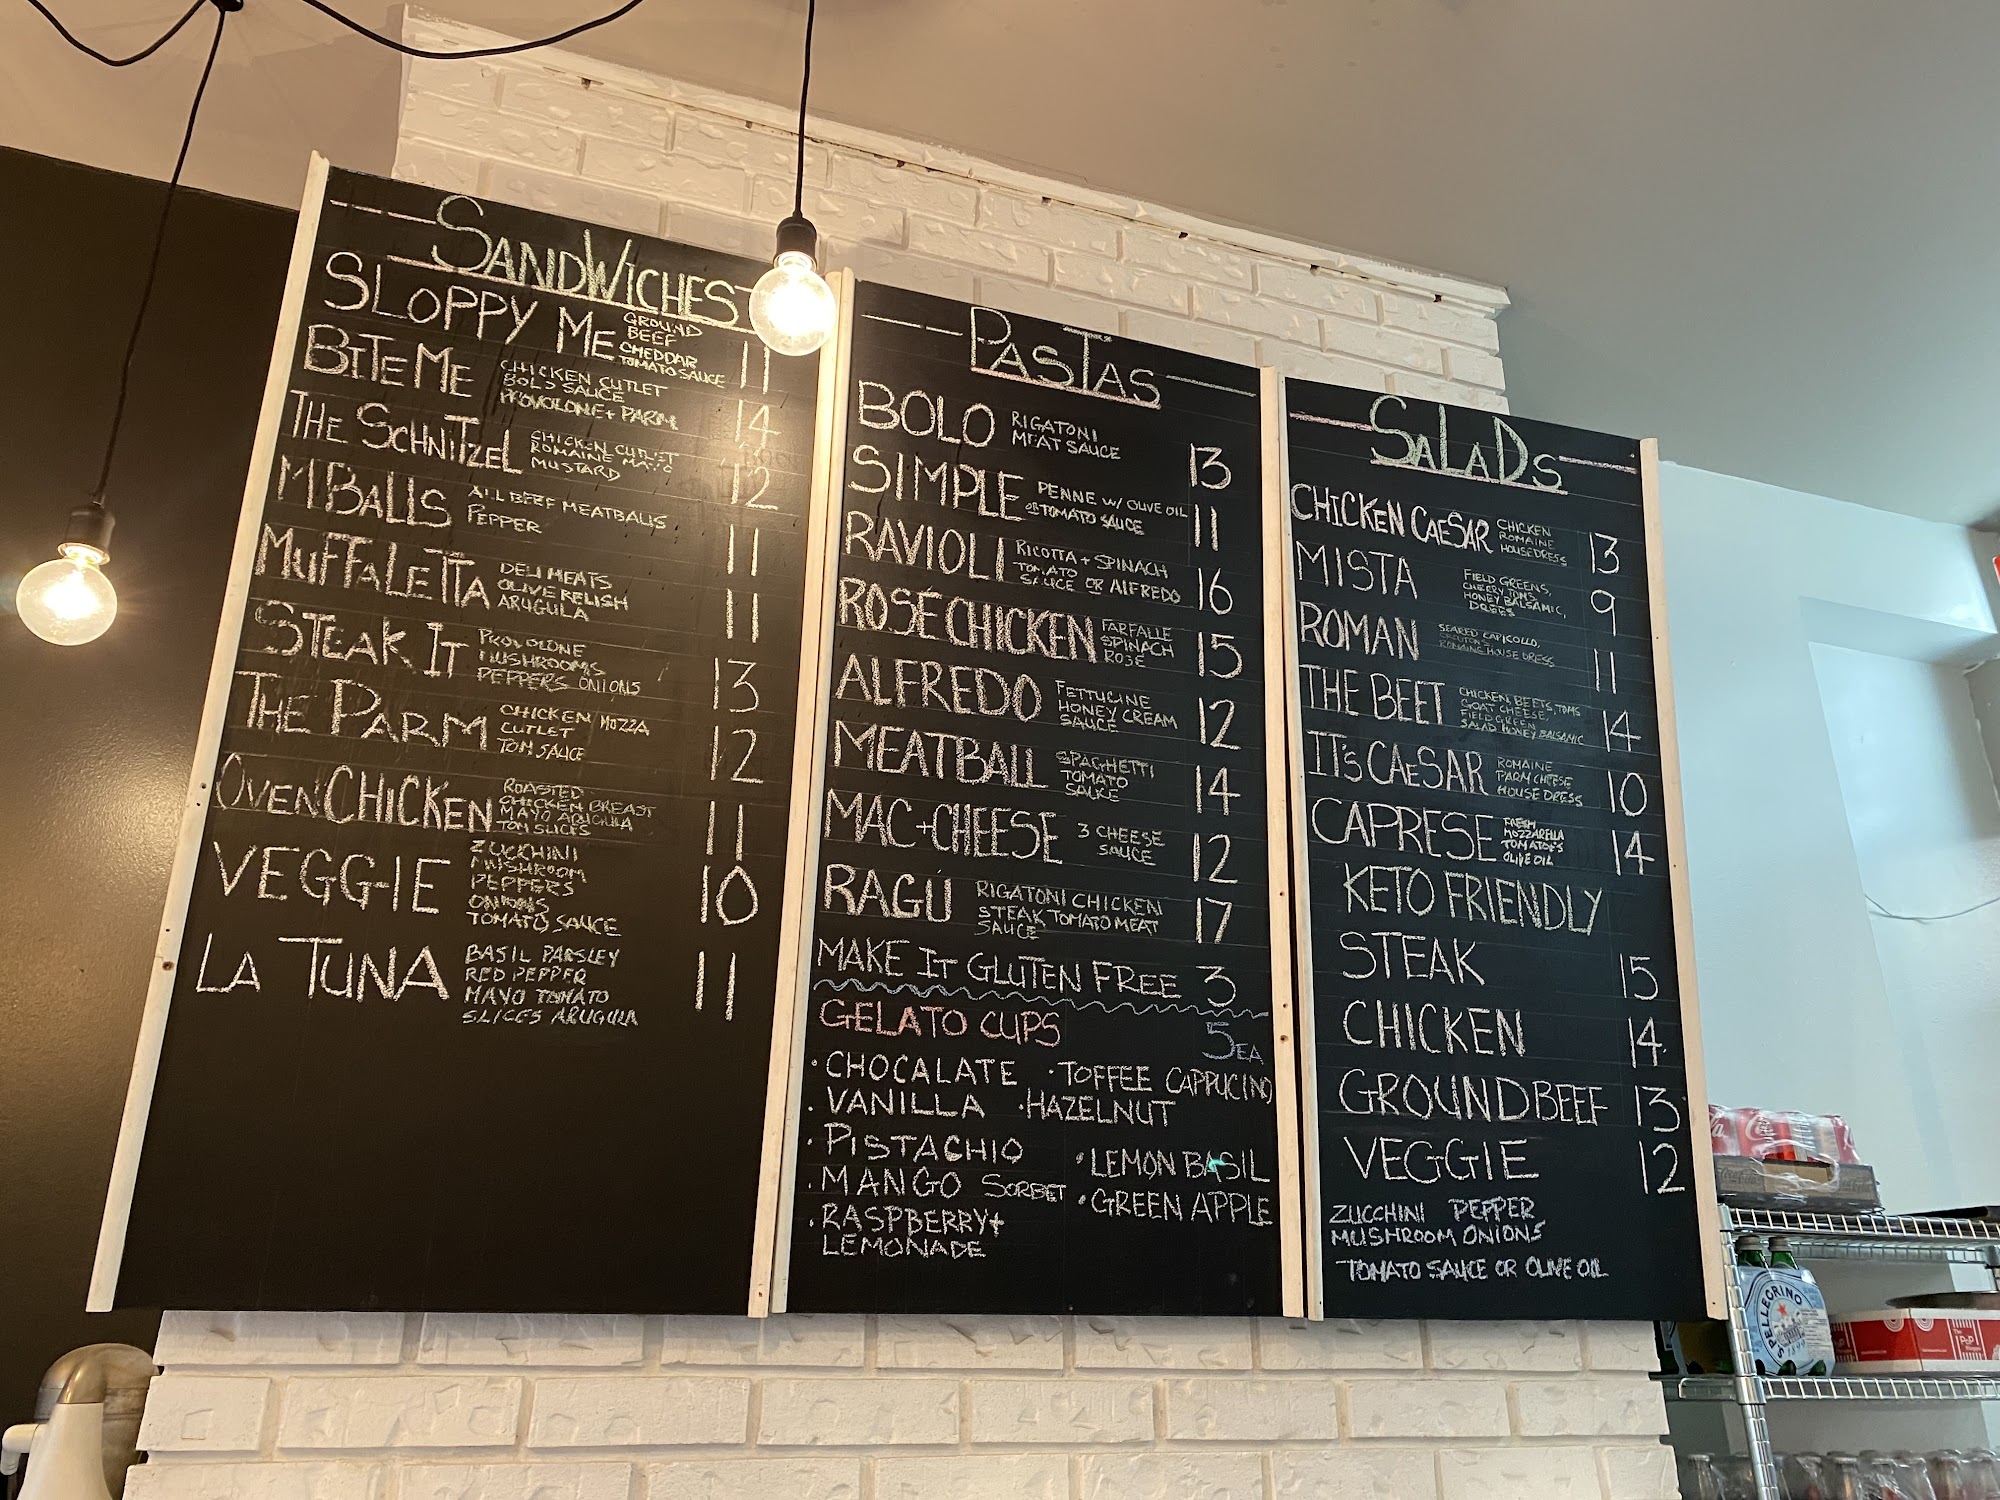 SANDWICHES
SLOPPY ME GROUND BEEF CHEDDAR TOMATO SAUCE 11
BITE ME CHICKEN CUTLET BOLO SAUCE PROVOLONE + PARM 14
THE SCHNITZEL CHICKEN CUTLET ROMAINE MAYO MUSTARD 12
M'BALLS ALL BEEF MEATBALLS PEPPER 11
MUFFALETTA DELI MEATS OLIVE RELISH ARUGULA 11
STEAK IT PROVOLONE MUSHROOMS PEPPERS ONIONS 13
THE PARM CHICKEN MOZZA CUTLET TOM SAUCE 12
OVEN CHICKEN ROASTED CHICKEN BREAST MAYO ARUGULA TOM SLICES 11
VEGGIE ZUCCHINI MUSHROOM PEPPERS ONIONS TOMATO SAUCE 10
LA TUNA BASIL PARSLEY RED PEPPER MAYO TOMATO SLICES ARUGULA 11
PASTAS
BOLO RIGATONI MEAT SAUCE 13
SIMPLE PENNE W/ OLIVE OIL OR TOMATO SAUCE 11
RAVIOLI RICOTTA + SPINACH TOMATO SAUCE OR ALFREDO 16
ROSÉ CHICKEN FARFALLE SPINACH ROSE 15
ALFREDO FETTUCINE HONEY CREAM SAUCE 12
MEATBALL SPAGHETTI TOMATO SAUCE 14
MAC+CHEESE 3 CHEESE SAUCE 12
RAGÚ RIGATONI CHICKEN STEAK TOMATO MEAT SAUCE 17
MAKE IT GLUTEN FREE 3
GELATO CUPS 5 EA
• CHOCALATE • TOFFEE CAPPUCINO
• VANILLA • HAZELNUT
• PISTACHIO • LEMON BASIL
• MANGO SORBET • GREEN APPLE
• RASPBERRY+
LEMONADE
SALADS
CHICKEN CAESAR CHICKEN ROMAINE HOUSE DRESS 13
MISTA FIELD GREENS, CHERRY TOMS, HONEY BALSAMIC, DRESS 9
ROMAN SEARED CAPICOLLO, CROUTONS ROMAINE HOUSE DRESS 11
THE BEET CHICKEN BEETS, TOMS GOAT CHEESE, FIELD GREEN SALAD HONEY BALSAMIC 14
IT'S CAESAR ROMAINE PARM CHEESE HOUSE DRESS 10
CAPRESE FRESH MOZZARELLA TOMATOES OLIVE OIL 14
KETO FRIENDLY
STEAK 15
CHICKEN 14
GROUND BEEF 13
VEGGIE 12
ZUCCHINI PEPPER
MUSHROOM ONIONS
TOMATO SAUCE OR OLIVE OIL
S.PELLEGRINO